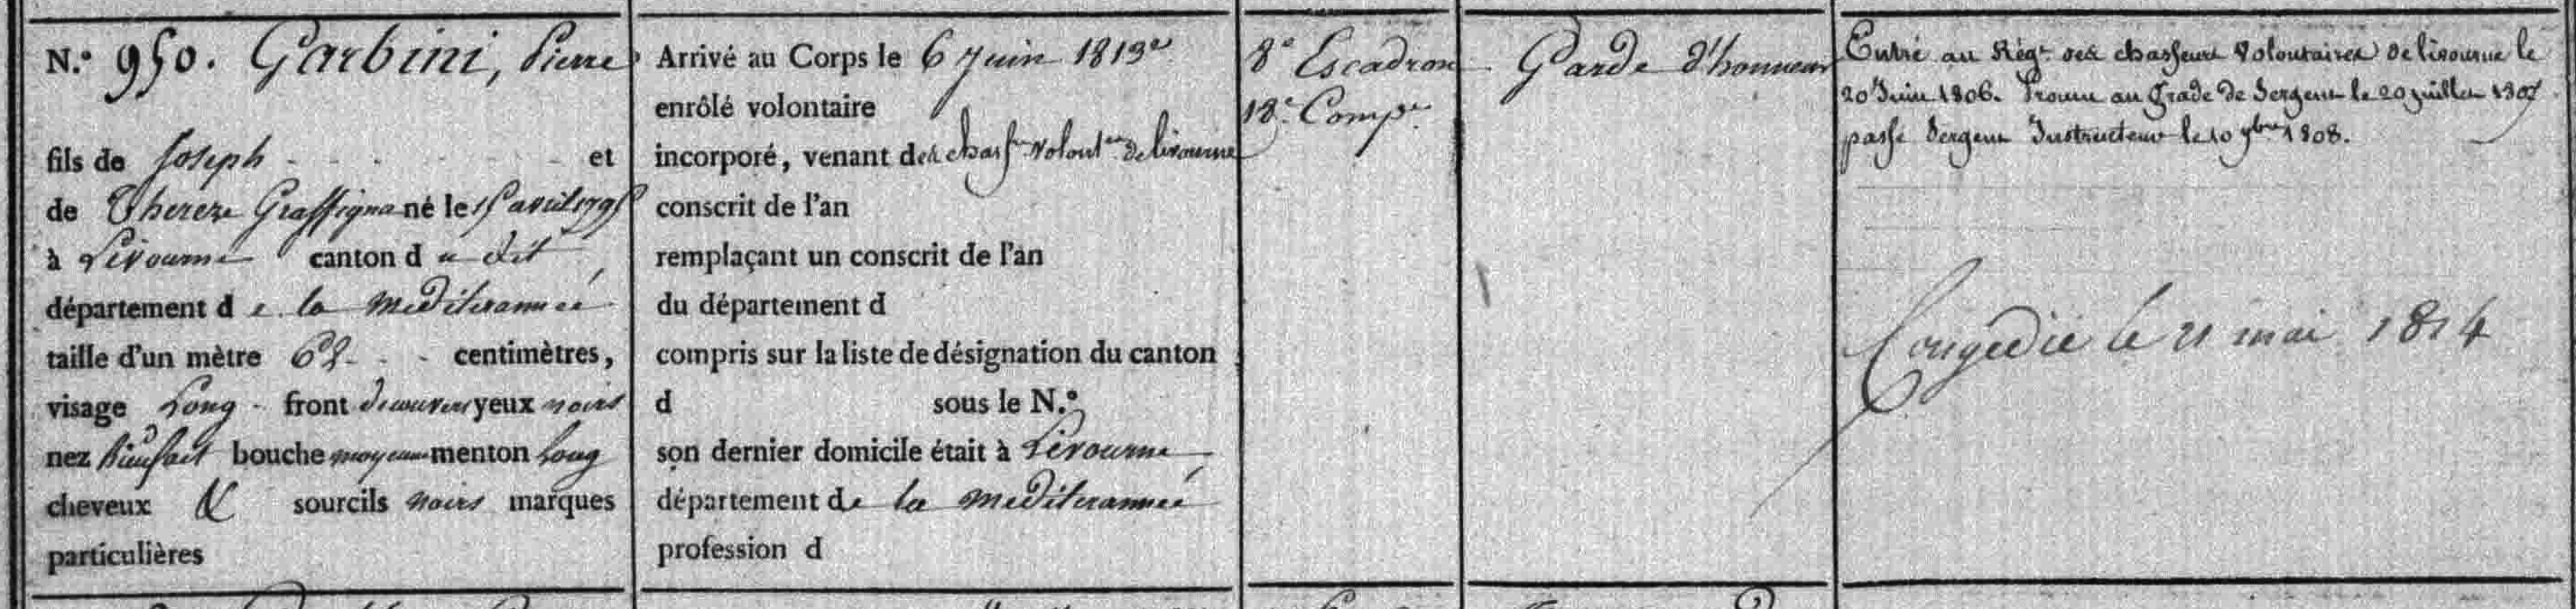 N.° 950. Garbini, Pierre
fils de Joseph - - - - - et
de Thereze Graffigna né le 15 avril 1795
à Livourne canton d u dit
département d e la mediterannée
taille d'un mètre 68 - - centimètres,
visage Long - front decouvert yeux noirs
nez bienfait bouche moyenne menton Long
cheveux & sourcils noirs marques
particulières
Arrivé au Corps le 6 Juin 1813
enrôlé volontaire
incorporé, venant des chass.rs volont.res de livourne
conscrit de l'an
remplaçant un conscrit de l'an
du département d
compris sur la liste de désignation du canton
d sous le N.°
son dernier domicile était à Livourne
département de la mediterannée
profession d
8e Escadron
18e Comp.e
Garde d'honneur
Entré au Rég.t des chasseurs Volontaires de livourne le
20 Juin 1806. Promu au Grade de Sergent le 20 juillet 1807
passé Sergent Instructeur le 10 9bre 1808.
Congédié le 21 mai 1814